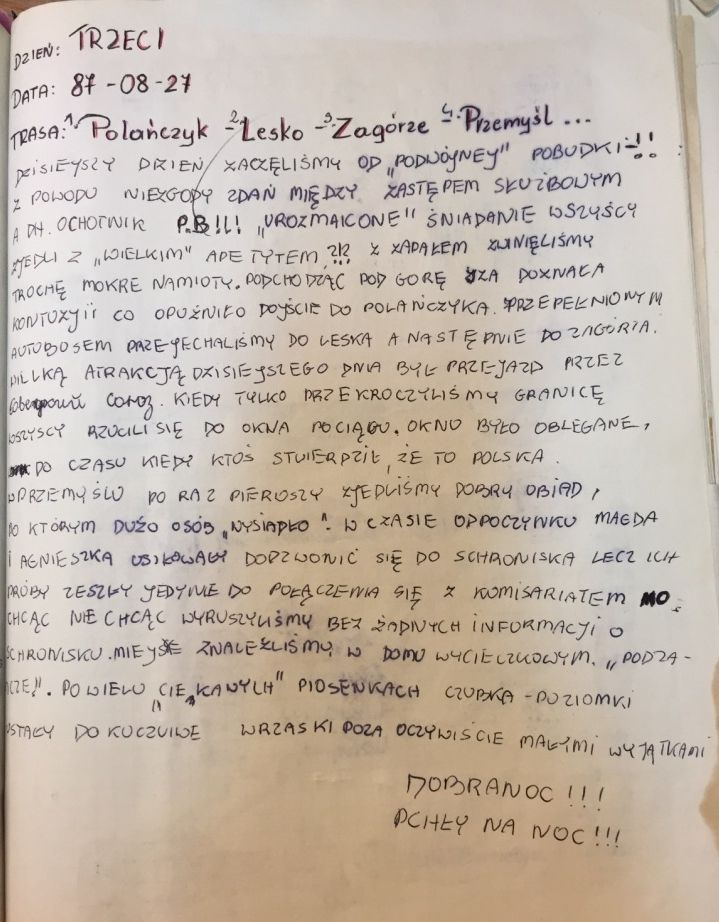 DZIEŃ: TRZECI
DATA: 87-08-27
TRASA: 1. Polańczyk - 2. Lesko - 3. Zagórze - 4. Przemyśl ...
DZISIEYSZY DZIEŃ ZACZĘLIŚMY OD „PODWÓYNEY" POBUDKI-!!
Z POWODU NIEZGODY ZDAŃ MIĘDZY ZASTĘPEM SŁUŻBOWYM
A DH. OCHOTNIK P.B!!! „UROZMAICONE" ŚNIADANIE WSZYŚCY
ZJEDLI Z „WIELKIM" APETYTEM ?!? Z ZAPAŁEM ZWINĘLIŚMY
TROCHĘ MOKRE NAMIOTY. PODCHODZĄC POD GORĘ IZA DOZNAŁA
KONTUZYII CO OPUŹNIŁO DOJŚCIE DO POLAŃCZYKA. PRZEPEŁNIONYM
AUTOBOSEM PRZEJECHALIŚMY DO LESKA A NASTĘPNIE DO ZAGÓRZA.
WILLKĄ ATRAKCJĄ DZISIEJSZEGO DNIA BYŁ PRZEJAZD PRZEZ
KIEDY TYLKO PRZEKROCZYLIŚMY GRANICĘ
WSZYSCY RZUCILI SIĘ DO OKNA POCIĄGU. OKNO BYŁO OBLEGANE,
DO CZASU KIEDY KTOŚ STWIERDZIŁ, ŻE TO POLSKA.
W PRZEMYŚLU PO RAZ PIERWSZY ZJEDLIŚMY DOBRY OBIAD,
PO KTÓRYM DUŻO OSÓB „WYSIADŁO". W CZASIE ODPOCZYNKU MAGDA
I AGNIESZKA USIŁOWAŁY DODZWONIĆ SIĘ DO SCHRONISKA LECZ ICH
PRÓBY ZESZŁY JEDYNIE DO POŁĄCZENIA SIĘ Z KOMISARIATEM MO.
CHCĄC NIE CHCĄC WYRUSZYLIŚMY BEZ ŻADNYCH INFORMACJI O
SCHRONISKU. MIEJSCE ZNALEŹLIŚMY W DOMU WYCIECZKOWYM. „PODZA-
MCZE". PO WIELU „CIEKAWYCH" PIOSENKACH CZUBKA-POZIOMKI
USTAŁY DOKUCZLIWE WRZASKI POZA OCZYWIŚCIE MAŁYMI WYJĄTKAMI
DOBRANOC!!!
PCHŁY NA NOC!!!